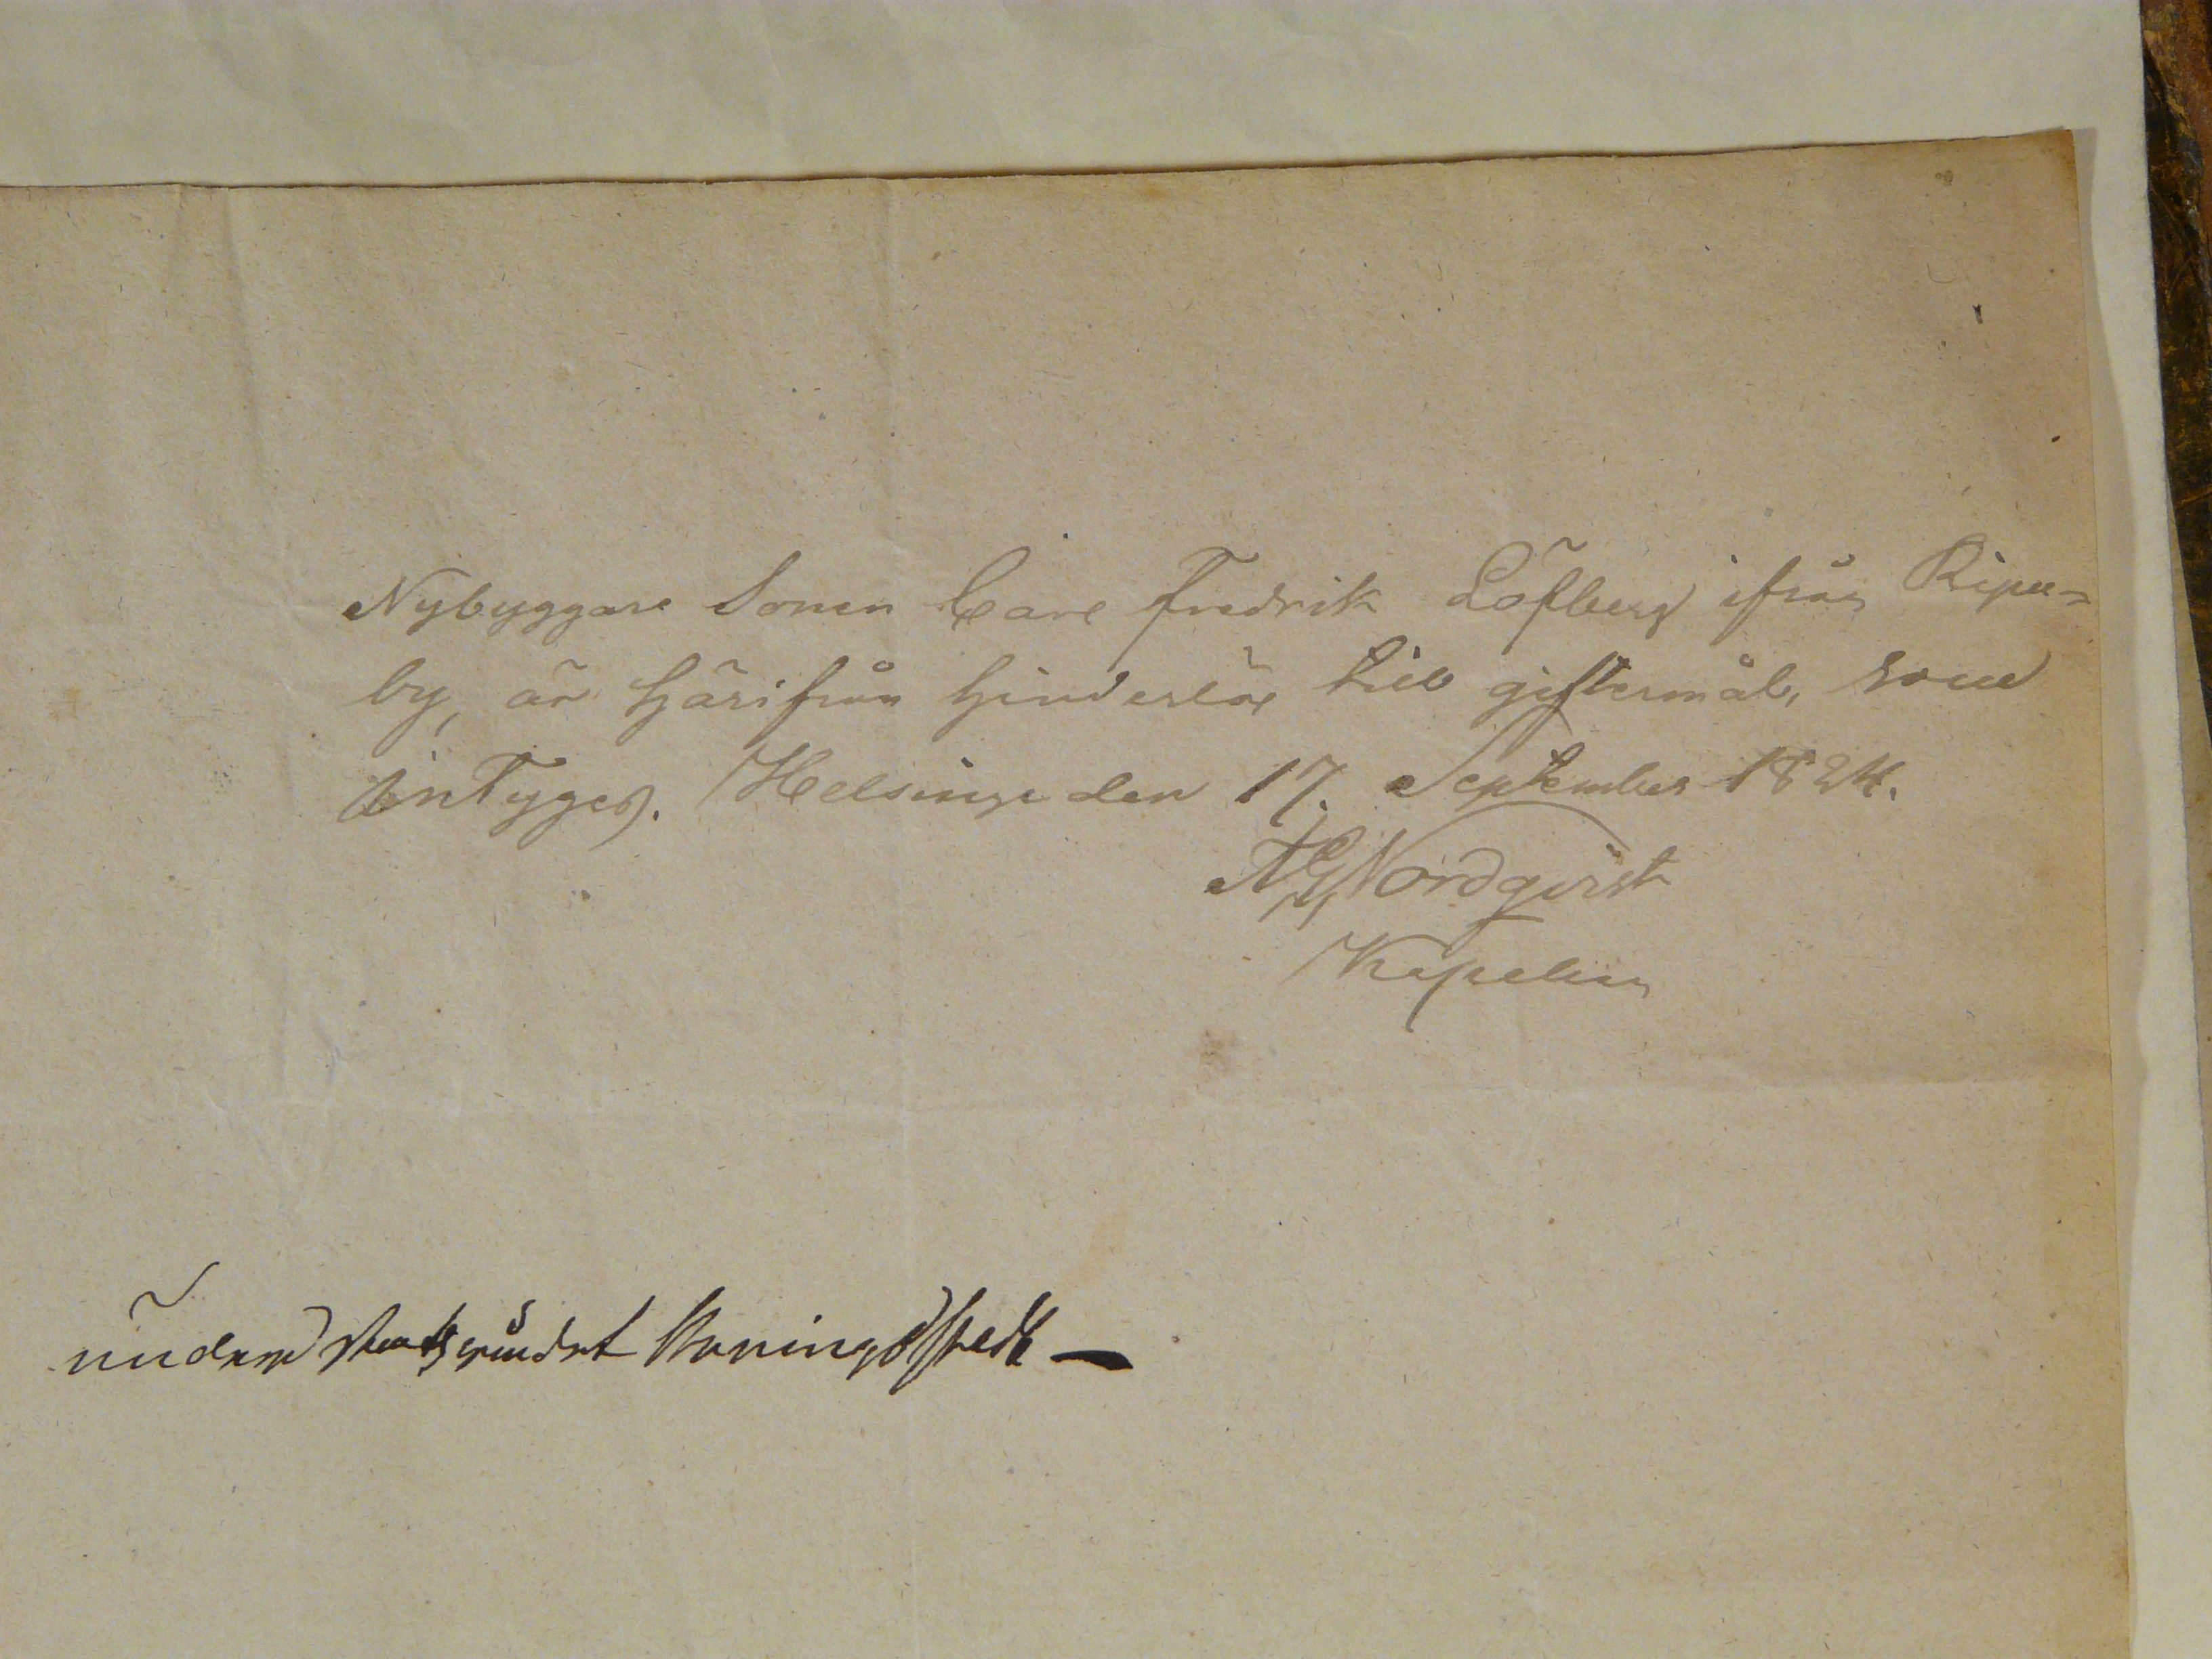 Nybyggare Sonen Carl Fredrik Löfberg ifrån Ripu-
by, är härifrån hinderlös till giftermål, som
intyges. Helsinge den 17. September 1824.
A G Nordqvist
Kapelan